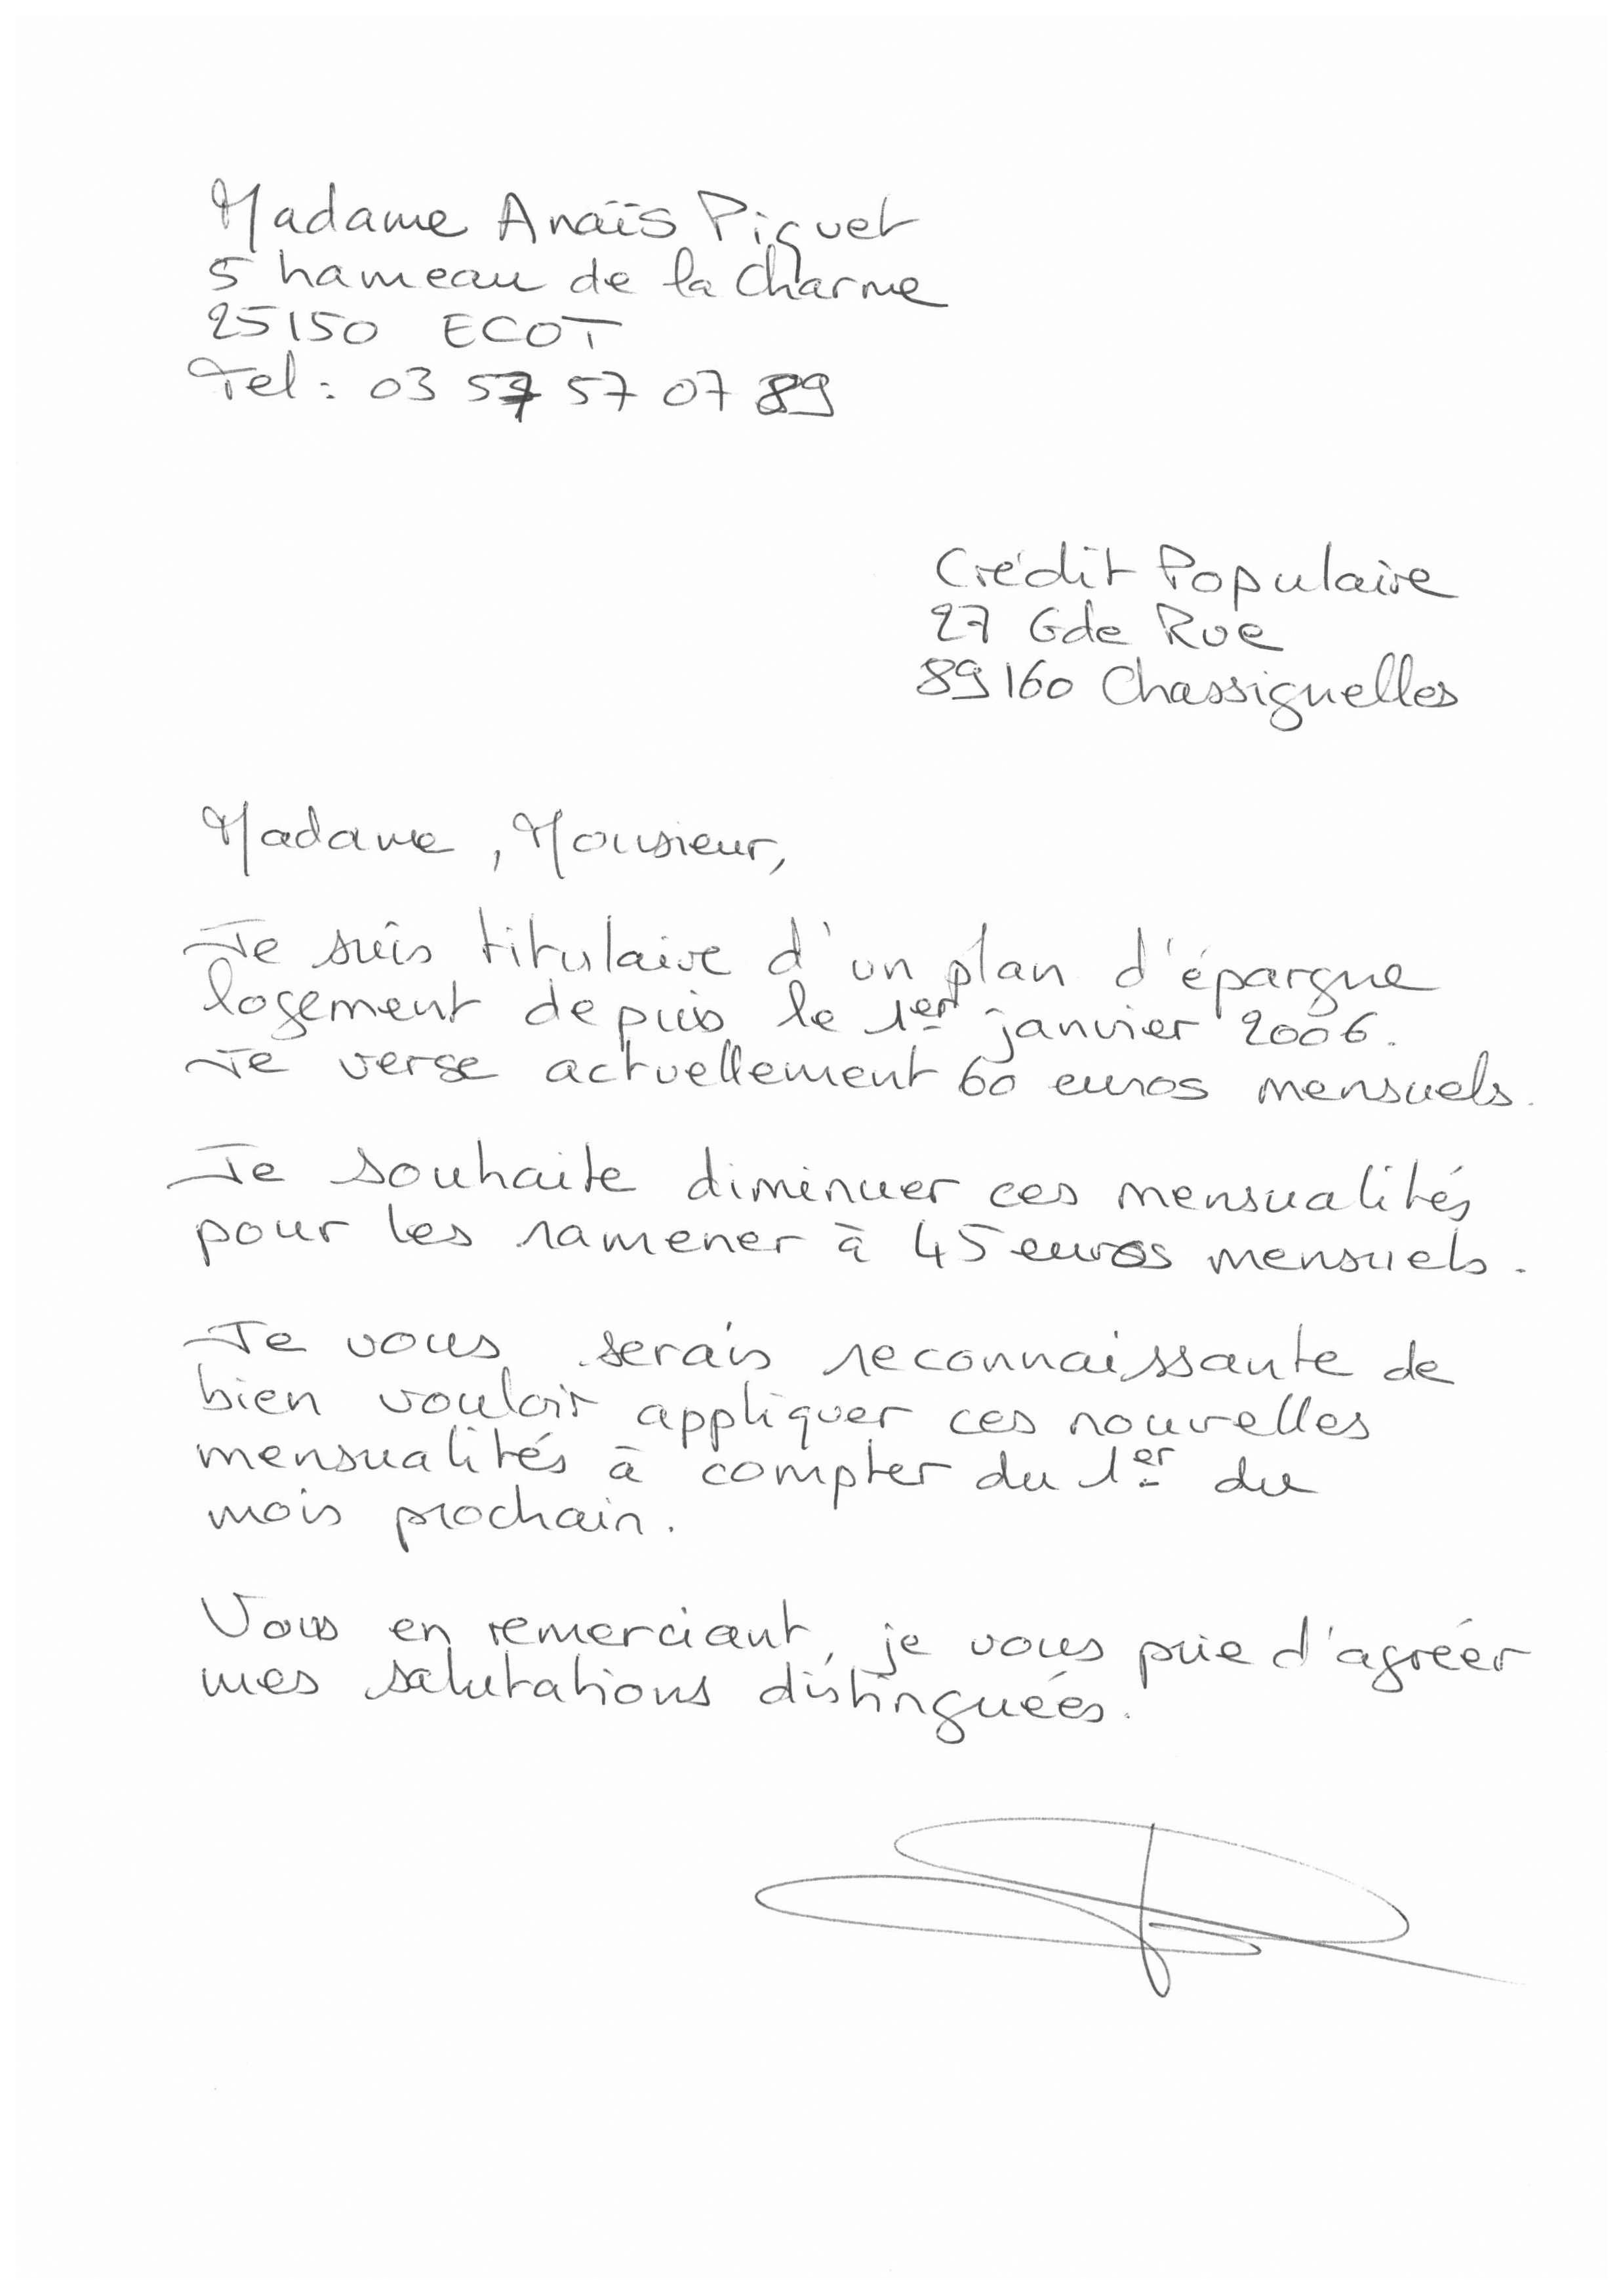 Madame Anaïs Piquet
5 hameau de la Charme
25150 ECOT
Tel : 03 57 57 07 89
Crédit Populaire
27 Gde Rue
89160 Chassignelles
Madame, Monsieur,
Je suis titulaire d'un plan d'épargne
logement depuis le 1er janvier 2006.
Je verse actuellement 60 euros mensuels.
Je souhaite diminuer ces mensualités
pour les ramener à 45 euros mensuels.
Je vous serais reconnaissante de
bien vouloir appliquer ces nouvelles
mensualités à compter du 1er du
mois prochain.
Vous en remerciant, je vous prie d'agréer
mes salutations distinguées.